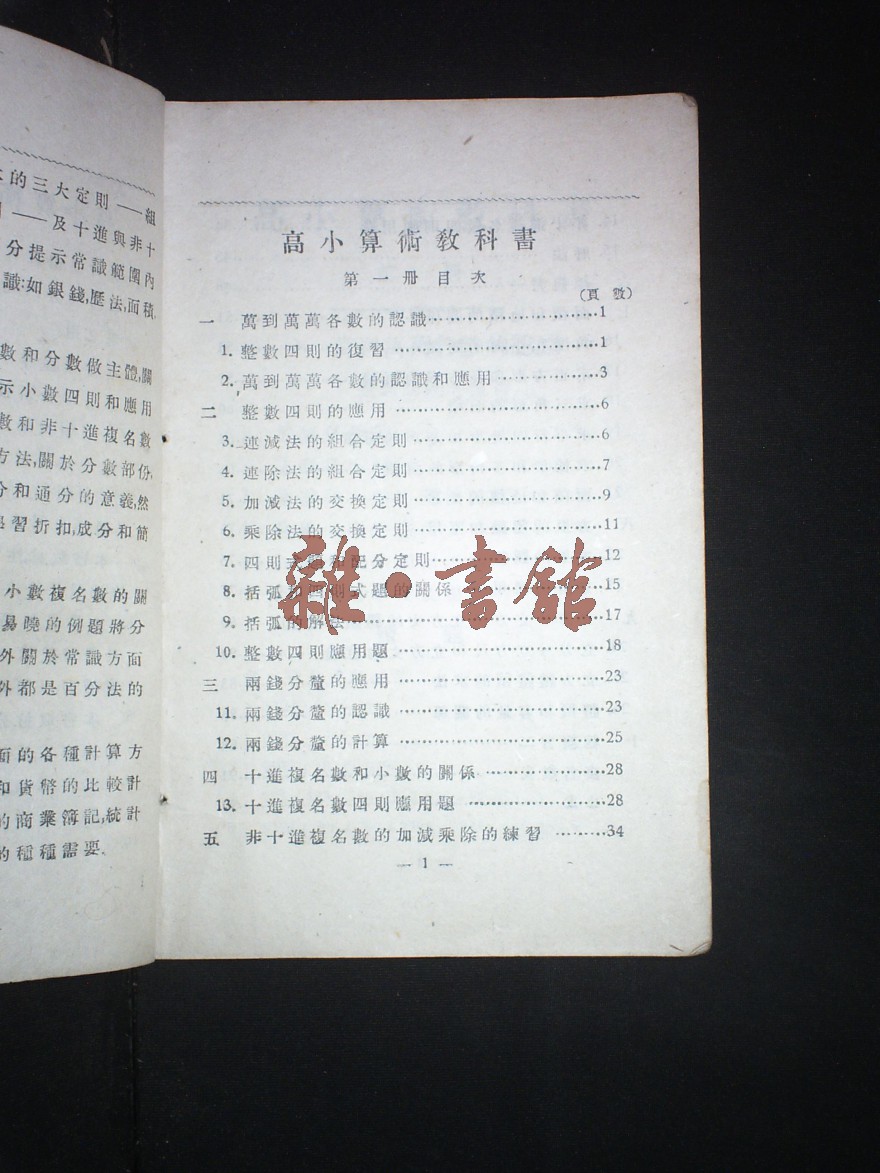 的三大定則——組
——及十進與非十
分提示常識範圍內
識:如銀錢,歷法,面積,
數和分數做主體,關
示小數四則和應用
數和非十進複名數
方法,關於分數部份,
分和通分的意義,然
學習折扣,成分和簡
小數複名數的關
易曉的例題將分
外關於常識方面
外都是百分法的
面的各種計算方
和貨幣的比較計
的商業簿記,統計
的種種需要.
高小算術教科書
第一冊目次
(頁數)
一 萬到萬萬各數的認識……1
1. 整數四則的復習……1
2. 萬到萬萬各數的認識和應用……3
二 整數四則的應用……6
3. 連減法的組合定則……6
4. 連除法的組合定則……7
5. 加減法的交換定則……9
6. 乘除法的交換定則……11
7. 四則式題和配分定則……12
8. 括弧和四則式題的關係……15
9. 括弧的解法……17
10. 整數四則應用題……18
三 兩錢分釐的應用……23
11. 兩錢分釐的認識……23
12. 兩錢分釐的計算……25
四 十進複名數和小數的關係……28
13. 十進複名數四則應用題……28
五 非十進複名數的加減乘除的練習……34
— 1 —
雜·書館